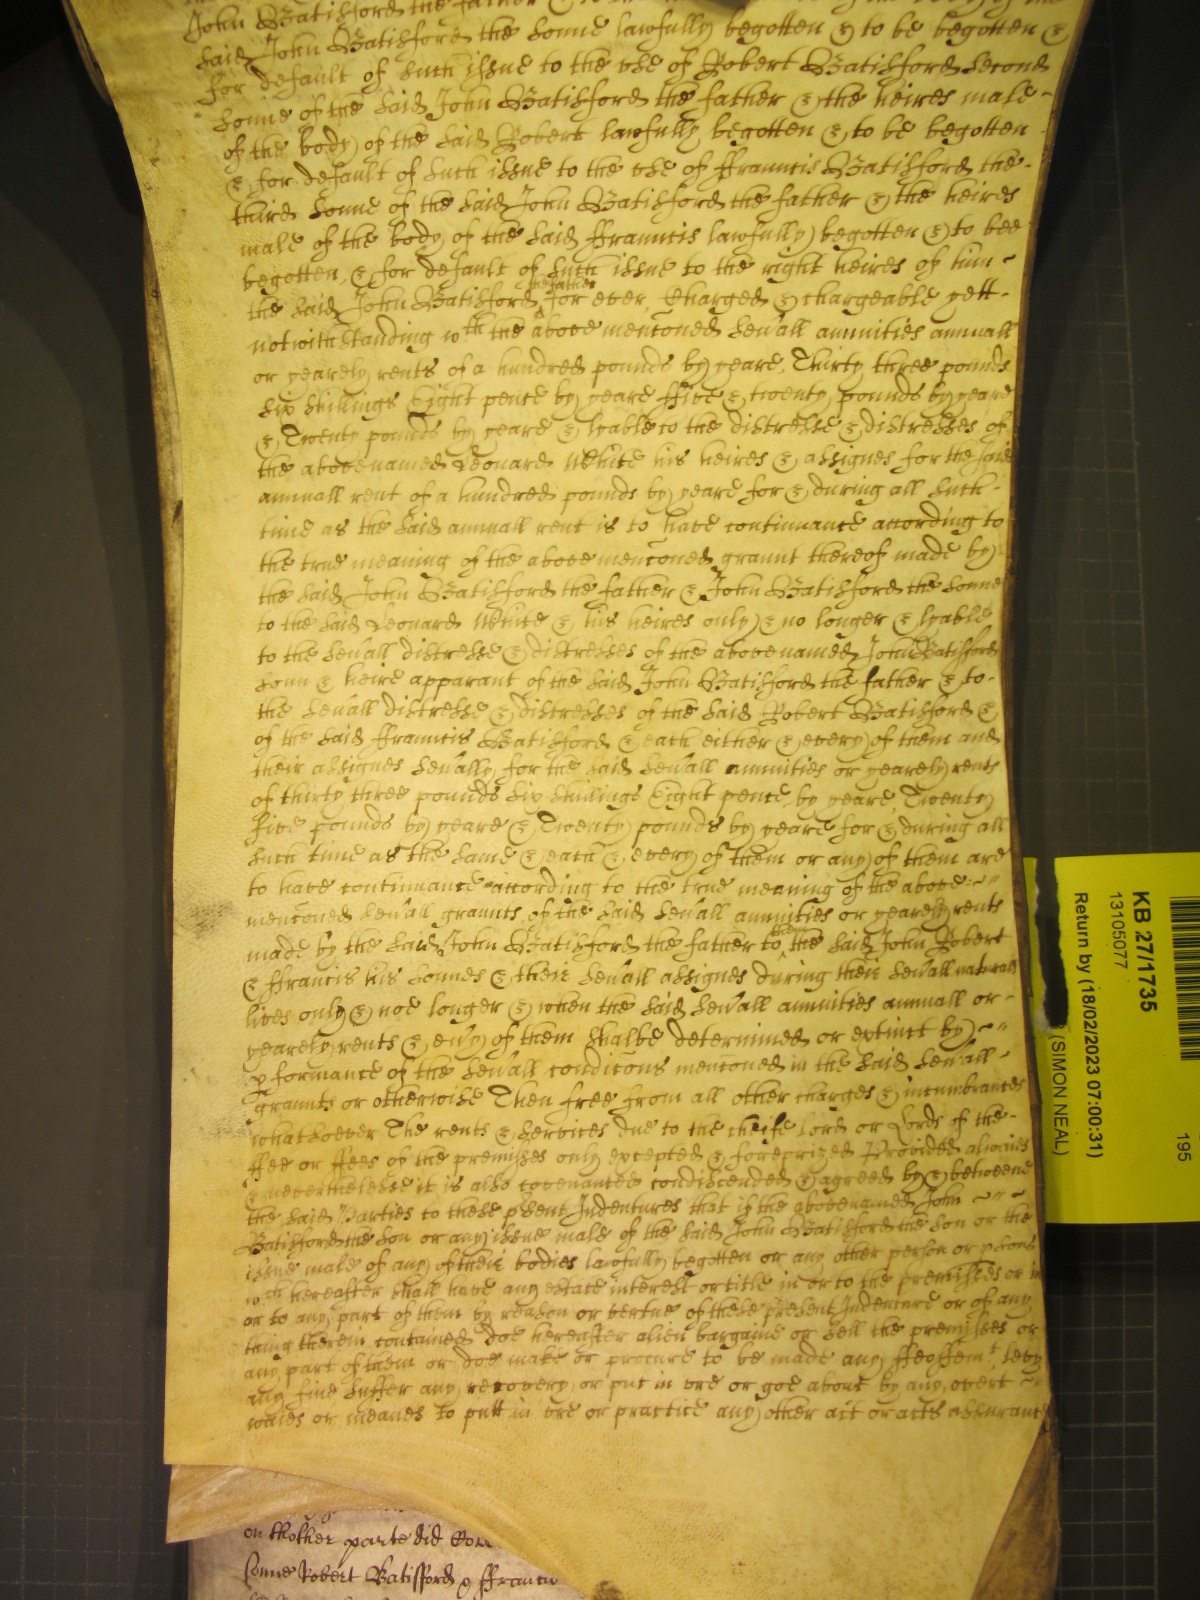 John Batisford the father & to the
said John Batisford the sonne lawfully begotten & to be begotten &
for default of such issue to the use of Robert Batisford second
sonne of the said John Batisford the father & the heires male
of the body of the said Robert lawfully begotten & to be begotten
& for default of such issue to the use of ffrauncis Batisford the
third sonne of the said John Batisford the father & the heires
male of the body of the said ffrauncis lawfully begotten & to bee
begotten, & for default of such issue to the right heires of him
the said John Batisford the father for ever, Charged & chargeable yett
notwithstanding wth the above menconed sevall annuities annuall
or yearely rents of a hundred pounds by yeare, Thirty three pounds
six shillings Eight pence by yeare ffive & twenty pounds by yeare
& Twenty pounds by yeare & lyable to the distresse & distresses of
the abovenamed Leonard White his heires & assignes for the said
annuall rent of a hundred pounds by yeare for & during all such
time as the said annuall rent is to have continuance according to
the true meaning of the above menconed graunt thereof made by
the said John Batisford the father & John Batisford the sonne
to the said Leonard White & his heires only & no longer & lyable
to the sevall distresse & distresses of the abovenamed John Batisford
sonn & heire apparant of the said John Batisford the father & to
the sevall distresse & distresses of the said Robert Batisford &
of the said ffrauncis Batisford & each either & every of them and
their assignes sevally for the said sevall annuities or yearely rents
of thirty three pounds six shillings Eight pence by yeare, Twenty
five pounds by yeare & Twenty pounds by yeare for & during all
such time as the same & each & every of them or any of them are
to have continuance according to the true meaning of the above
menconed sevall graunts of the said sevall annuities or yearely rents
made by the said John Batisford the father to them the said John Robert
& ffrancis his sonnes & their sevall assignes during their sevall naturall
lives only & noe longer & when the said sevall annuities annuall or
yearely rents & evy of them shalbe determined or extinct by
pformance of the sevall condicons menconed in the said sevall
graunts or otherwise Then free from all other charges & incumbrances
whatsoever The rents & services due to the cheife lord or Lords of the
ffee or ffees of the premisses only excepted & foreprized Provided alwaies
& neverthelesse it is also covenanted condiscended & agreed by & betweene
the said Parties to these psent Indentures that if the abovenamed John
Batisford the son or any issue male of the said John Batisford the son or the
issue male of any of their bodies lawfully begotten or any other person or psons
wch hereafter shall have any estate interest or title in or to the premisses or in
or to any part of them by reason or vertue of these present Indenture or of any
thing therein contained doe hereafter alien bargaine or sell the premisses or
any part of them or doe make or procure to be made any ffeoffemt, levy
any fine suffer any recovery or put in ure or goe about by any overt
waies or meanes to putt in ure or practice any other act or acts assurance
on thother parte did
sonne Robert Batisfford &
KB 27/1735
13105077
Return by (18/02/2023 07:00:31)
(SIMON NEAL)
195